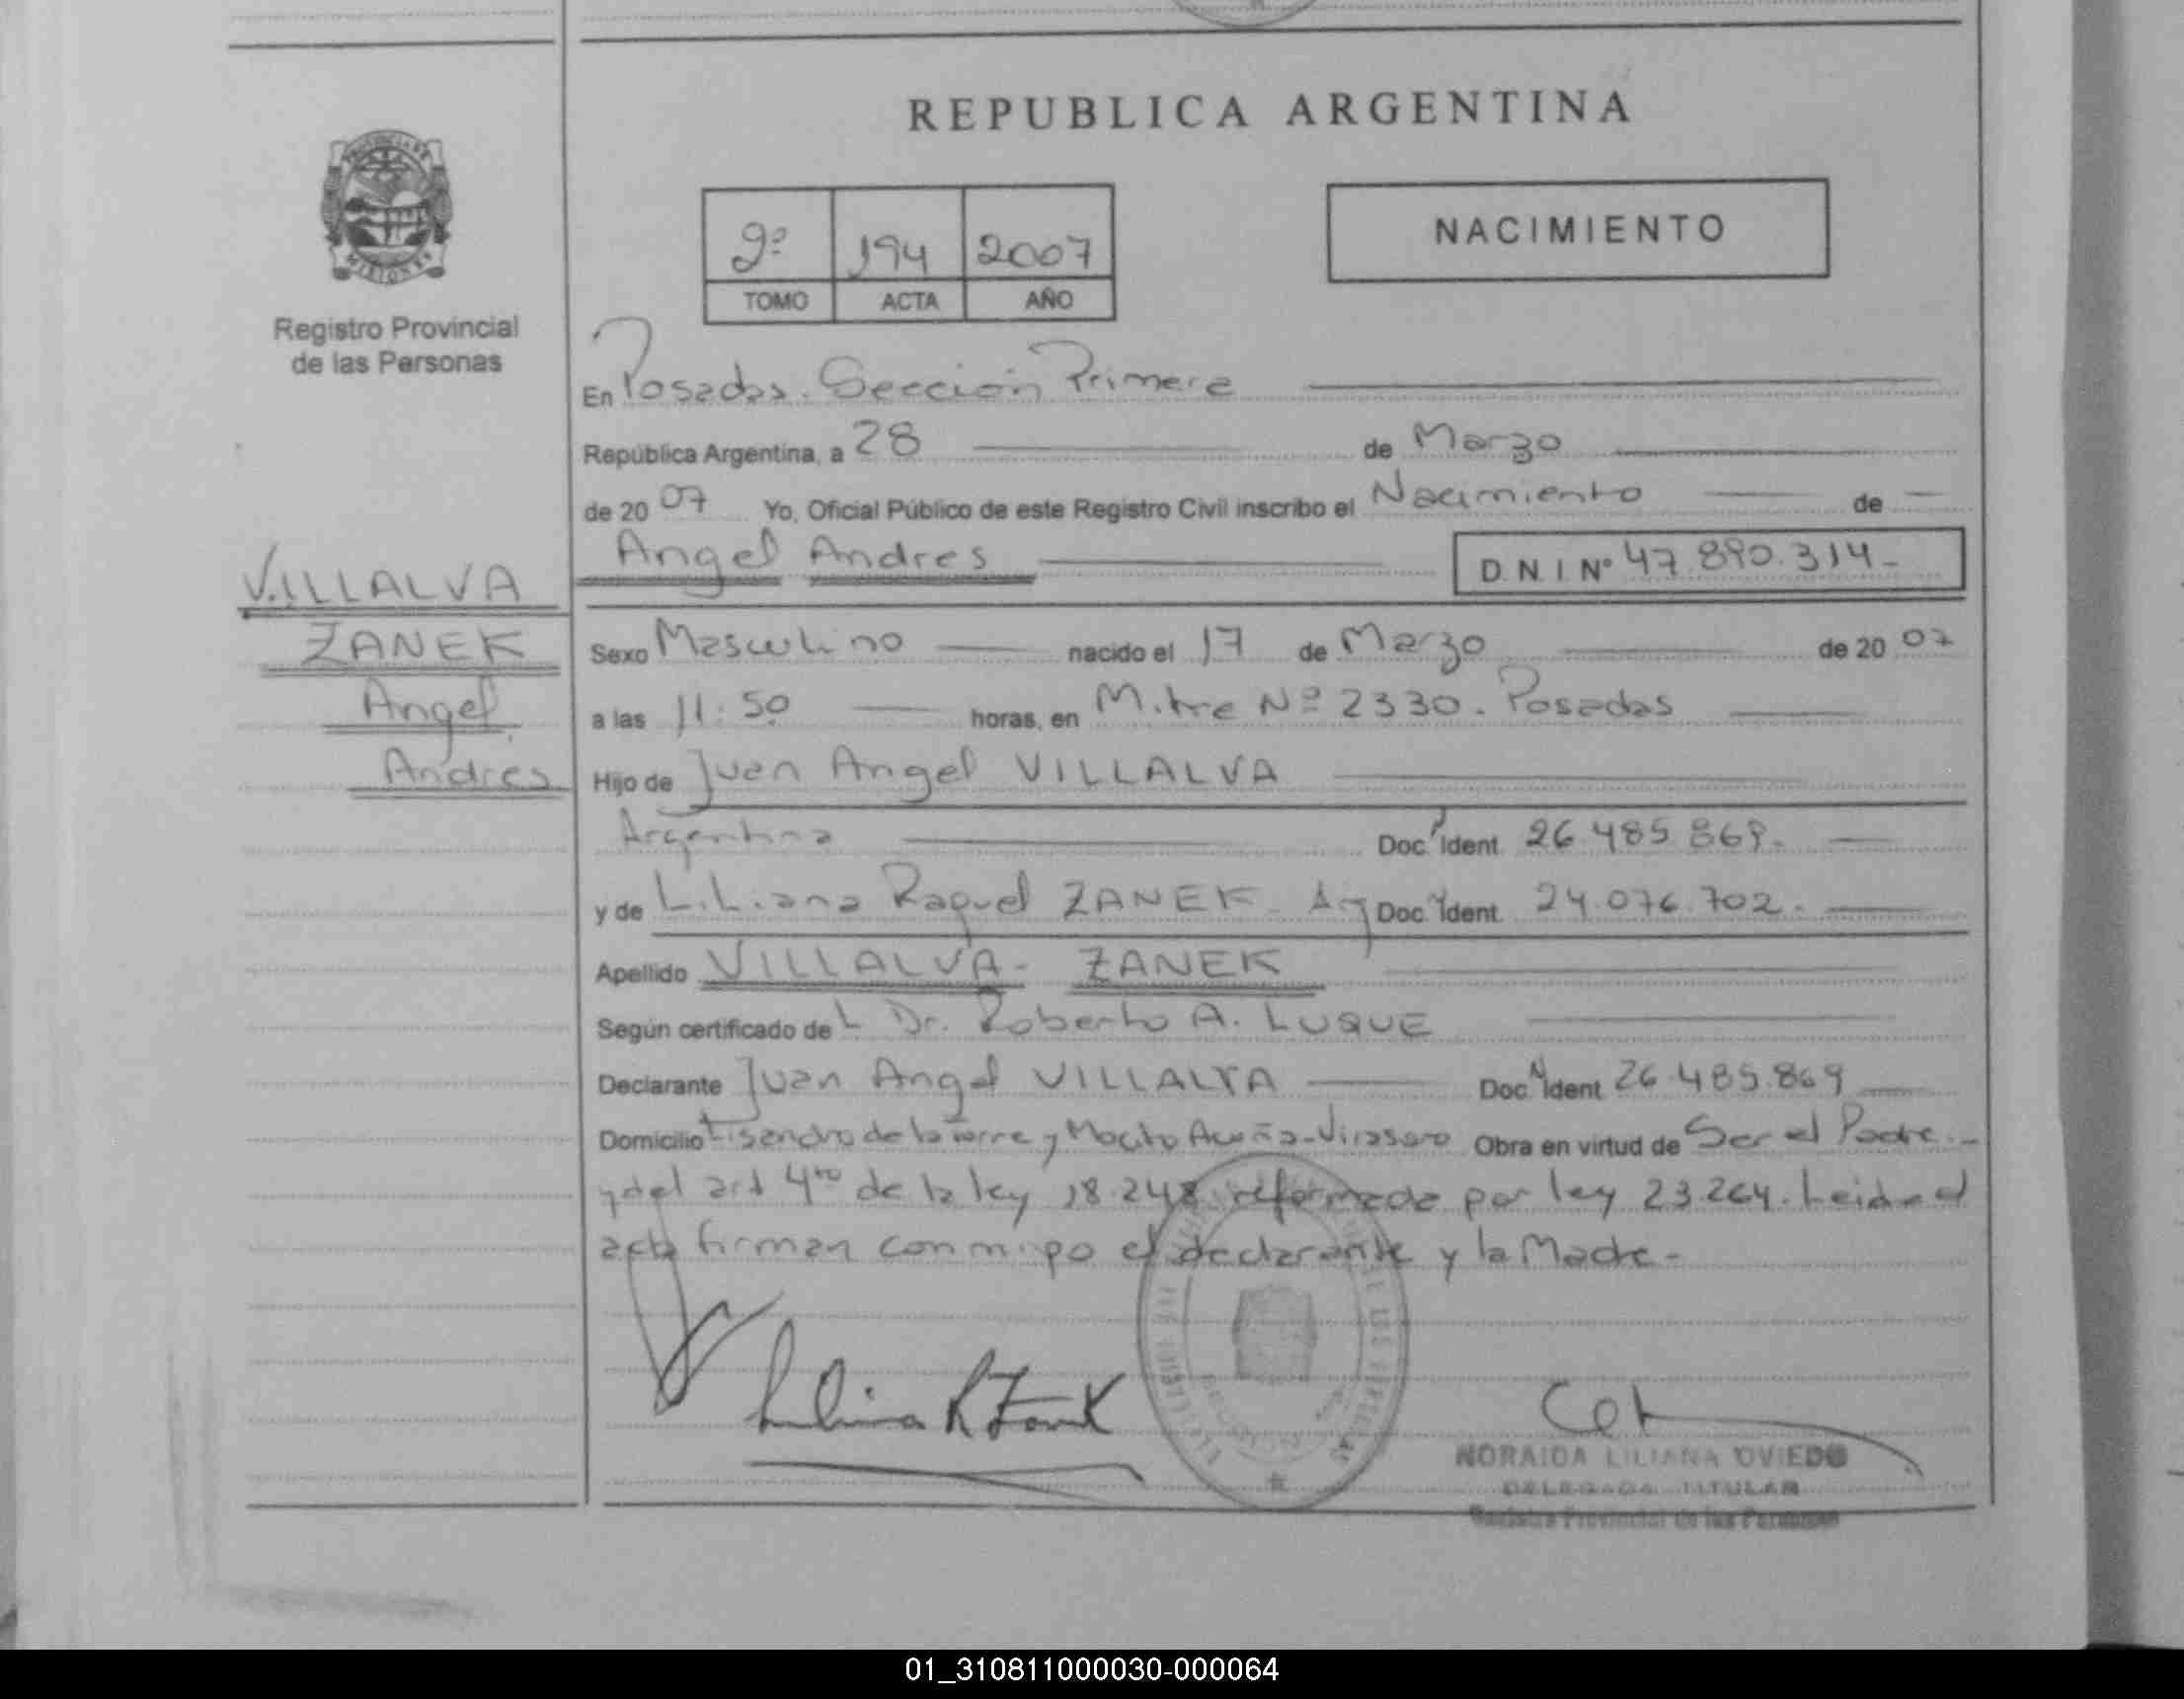 REPUBLICA ARGENTINA
PROVINCIA DE
MISIONES
Registro Provincial
de las Personas
2º 194 2007
TOMO ACTA AÑO
NACIMIENTO
En Posadas. Sección Primera
República Argentina, a 28 de Marzo
de 20 07 Yo, Oficial Público de este Registro Civil inscribo el Nacimiento de
Angel Andres D.N.I Nº 47.890.314-
VILLALVA
ZANEK
Angel
Andres
Sexo Masculino nacido el 17 de Marzo de 20 07
a las 11:50 horas, en Mitre Nº 2330. Posadas
Hijo de Juan Angel VILLALVA
Argentina Doc. Ident. 26.485.869.
y de Liliana Raquel ZANEK - Arg Doc. Ident. 24.076.702.
Apellido VILLALVA - ZANEK
Según certificado de L Dr. Roberto A. LUQUE
Declarante Juan Angel VILLALVA Doc. Ident. 26.485.869
Domicilio Lisandro de la Torre y Acuña-Virasoro Obra en virtud de Ser el Padre.-
y del art 4to de la ley 18.248 reformada por ley 23.264. Leida el
acta firman conmigo el declarante y la Madre-
Liliana R Zanek
NORAIDA LILIANA OVIEDO
DELEGADA TITULAR
Registro Provincial de las Personas
01_310811000030-000064